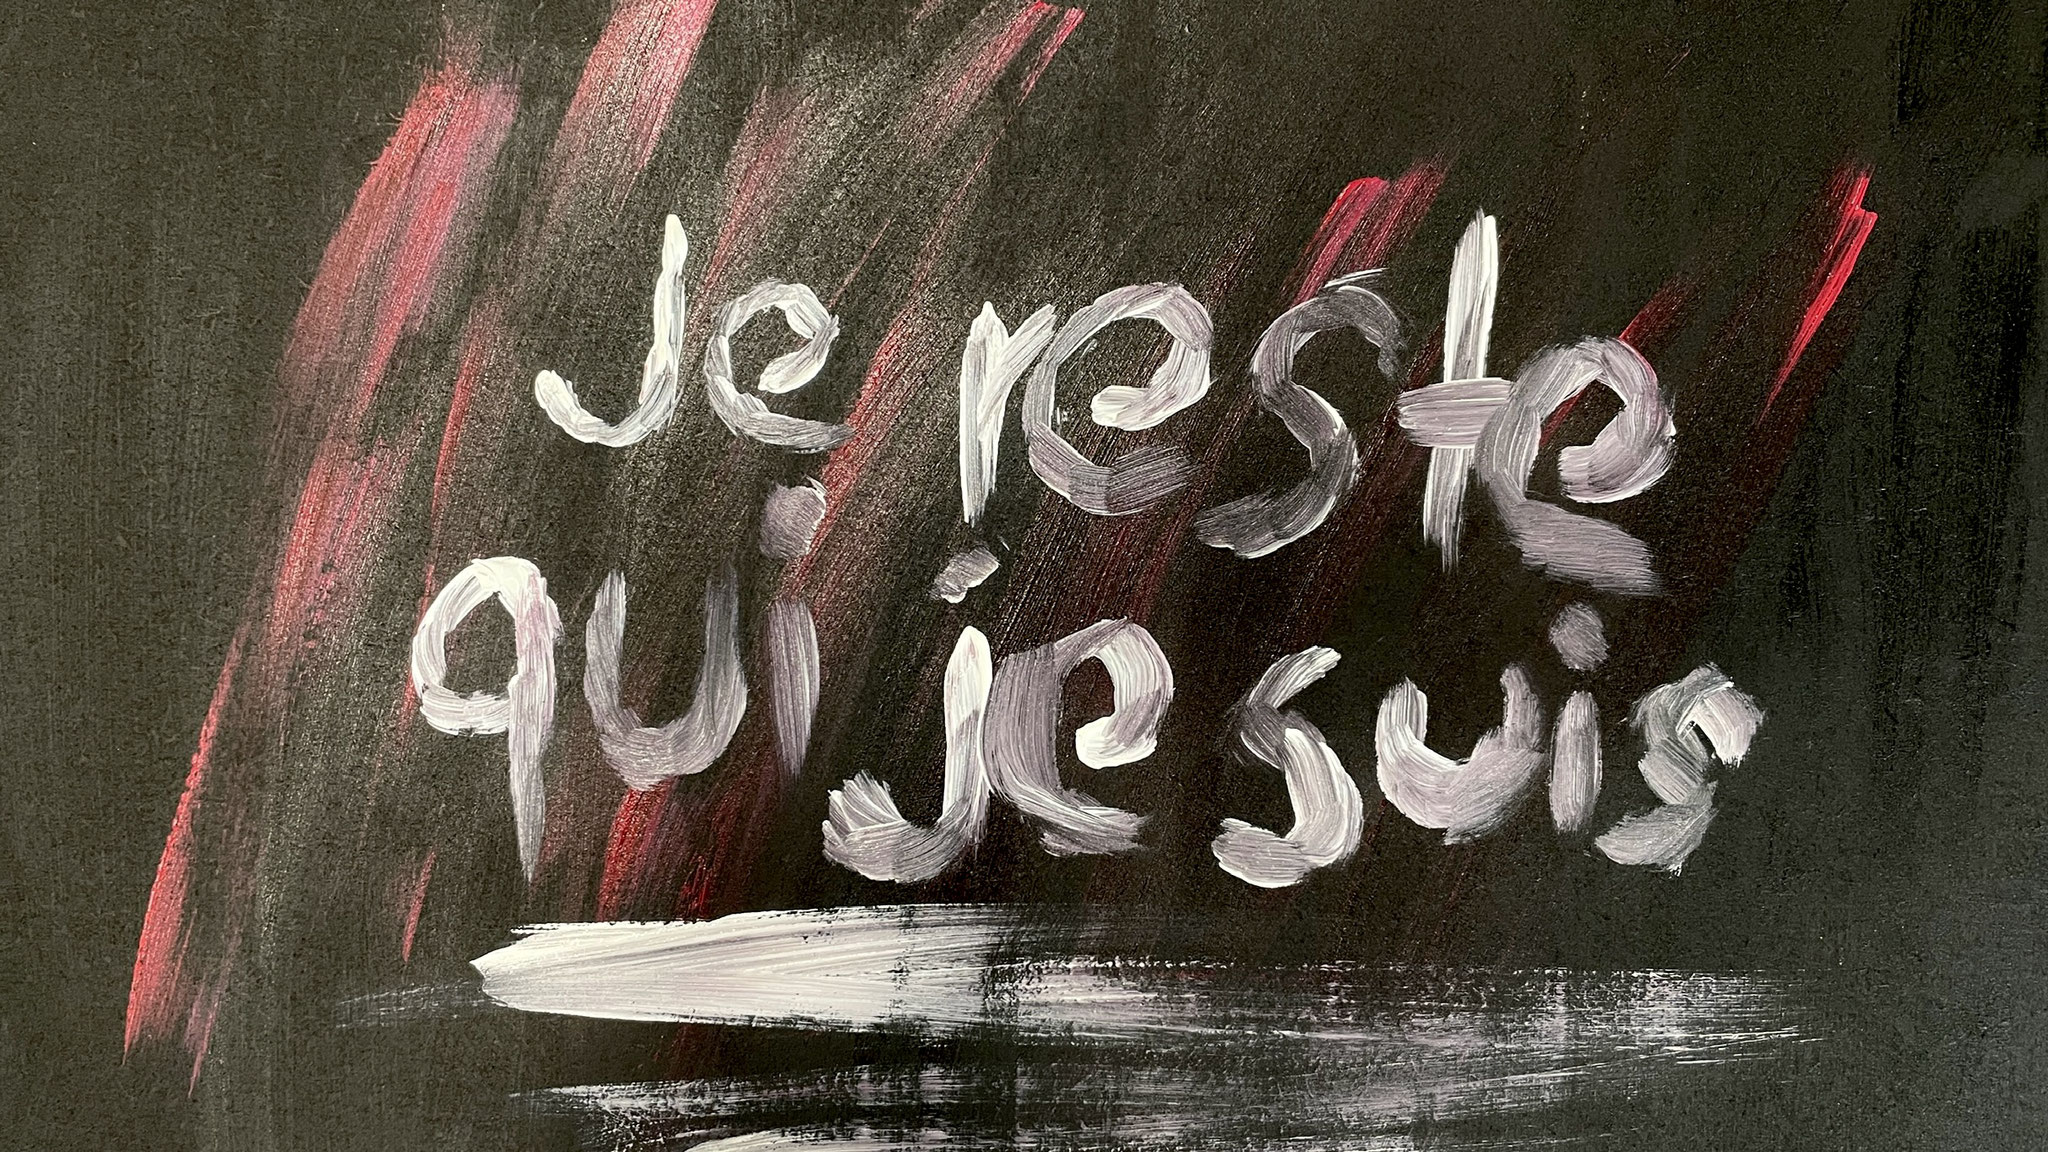 Je reste
qui je suis